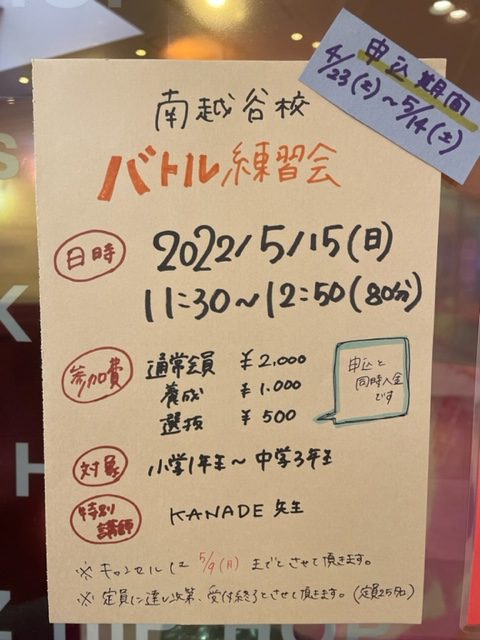 申込期間
4/23(土)~5/14(土)
南越谷校
バトル練習会
日時
2022/5/15(日)
11:30~12:50(80分)
参加費
通常会員 ¥2,000
養成 ¥1.000
選抜 ¥500
申込と
同時入金
です
対象
小学1年生~中学3年生
特別
講師
KANADE 先生
※ キャンセルは 5/9(月) までとさせて頂きます。
※ 定員に達し次第、受付終了とさせて頂きます。(定員25名)